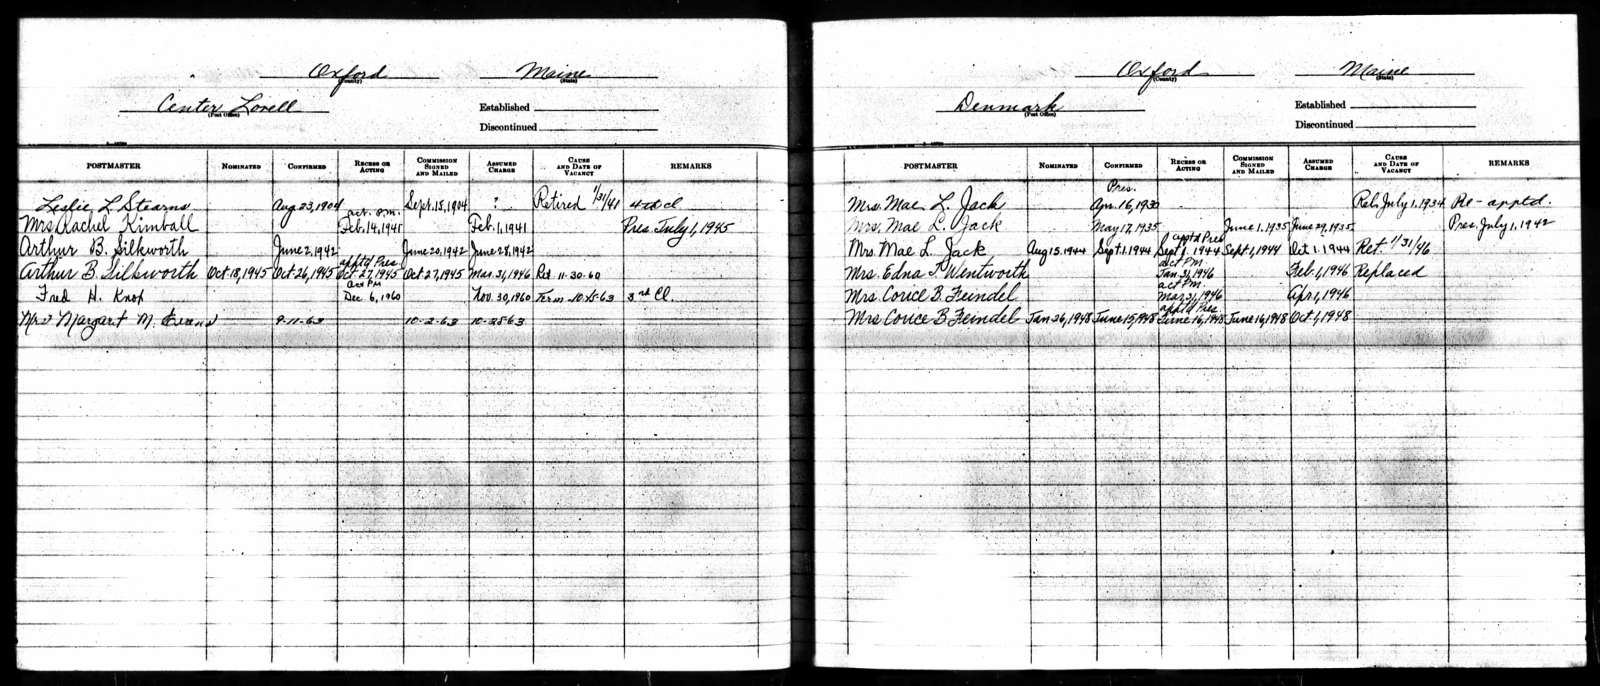 Oxford Maine
(County) (State)
Center Lovell Established
(Post Office) Discontinued
POSTMASTER NOMINATED CONFIRMED RECESS OR ACTING COMMISSION SIGNED AND MAILED ASSUMED CHARGE CAUSE AND DATE OF VACANCY REMARKS
Leslie L Stearns Aug 23, 1904 Sept. 15, 1904 ? Retired 1/31/41 4th cl
act. P.M.
Mrs Rachel Kimball Feb. 14, 1941 Feb. 1, 1941 Pres. July 1, 1945
Arthur B. Silkworth June 2, 1942 June 20, 1942 June 28, 1942
appt'd Pres
Arthur B. Silksworth Oct 18, 1945 Oct 26, 1945 Oct 27, 1945 Oct 27, 1945 Mar. 31, 1946 Ret 11-30-60
act PM
Fred H. Knox Dec. 6, 1960 Nov. 30, 1960 Term - 10-25-63 3rd Cl.
Mrs Margaret M. Evans 9-11-63 10-2-63 10-25-63
Oxford Maine
(County) (State)
Denmark Established
(Post Office) Discontinued
POSTMASTER NOMINATED CONFIRMED RECESS OR ACTING COMMISSION SIGNED AND MAILED ASSUMED CHARGE CAUSE AND DATE OF VACANCY REMARKS
Pres.
Mrs. Mae L. Jack Apr. 16, 1930 July 1, 1934 Re-apptd.
Mrs. Mae L. Jack May 17, 1935 June 1, 1935 June 29, 1935 Pres. July 1, 1942
appt'd Pres
Mrs. Mae L. Jack Aug 15, 1944 Sept 1, 1944 Sept 1, 1944 Sept 1, 1944 Oct 1, 1944 Ret. 1/31/46
act PM.
Mrs. Edna F. Wentworth Jan. 31, 1946 Feb 1, 1946 Replaced
act PM.
Mrs. Corice B. Feindel Mar 21, 1946 Apr 1, 1946
appt'd Pres
Mrs Corice B. Feindel Jan 26, 1948 June 15, 1948 June 16, 1948 June 16, 1948 Oct 1, 1948